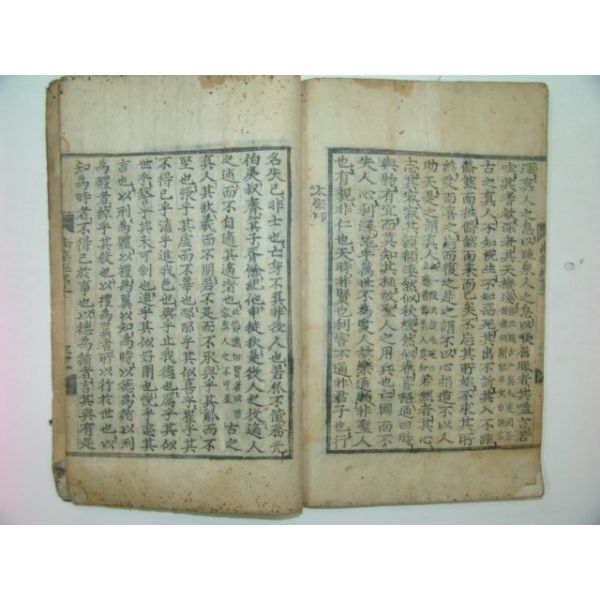 深真人之息以踵衆人之息以喉屈服者其嗌言若
哇其耆欲深者其天機淺
古之真人不知悅生不知惡死其出不訢其入不距
翛然而往翛然而來而已矣不忘其所始不求其所
終受而喜之忘而復之是之謂不以心捐道不以人
助天是之謂真人
若然者其心
志其容寂其顙頯淒然似秋煖然似春喜怒通四時
與物有宜而莫知其極故聖人之用兵也亡國而不
失人心利澤施乎萬世不為愛人故樂通物非聖人
也有親非仁也天時非賢也利害不通非君子也行
大宗師
名失己非士也亡身不真非役人也若狐不偕務光
伯夷叔齊箕子胥餘紀他申徒狄是役人之役適人
之適而不自適其適者也
古之
真人其狀義而不朋若不足而不承與乎其觚而不
堅也張乎其虛而不華也邴邴乎其似喜乎崔乎其
不得已乎滀乎進我色也與乎止我德也厲乎其似
世乎謷乎其未可制也連乎其似好閉也悗乎忘其
言也以刑為體以禮為翼以知為時以德為循以刑
為體者綽乎其殺也以禮為翼者所以行於世也以
知為時者不得已於事也以德為循者言其與有足